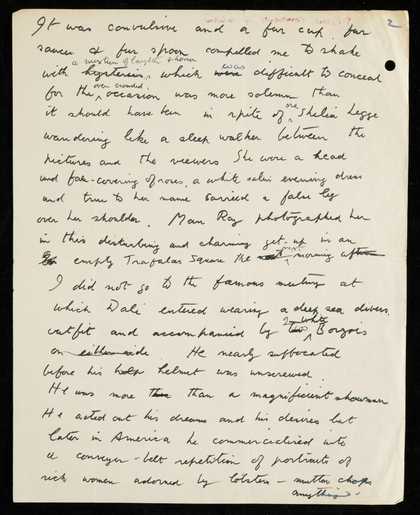 2
It was convulsive and a fur cup, fur
saucer & fur spoon compelled me to shake
a mixture of laughter & horror
with hysteria, which was difficult to conceal
over crowded
for the occasion was more solemn than
it should have been in spite of one Sheila Legge
wandering like a sleep walker between the
pictures and the viewers She wore a head
and face-covering of roses, a white satin evening dress
and true to her name carried a false leg
over her shoulder. Man Ray photographed her
in this disturbing and charming get-up in an
empty Trafalgar Square the morning after
I did not go to the famous meeting at
which Dali entered wearing a deep sea divers
2 white
outfit and accompanied by two Borzois
on either side He nearly suffocated
before his helmet was unscrewed.
He was more than a magnificent showman
He acted out his dreams and his desires but
later in America he commercialised into
a conveyor-belt repetition of portraits of
rich women adorned by lobsters – mutton chops
anything.